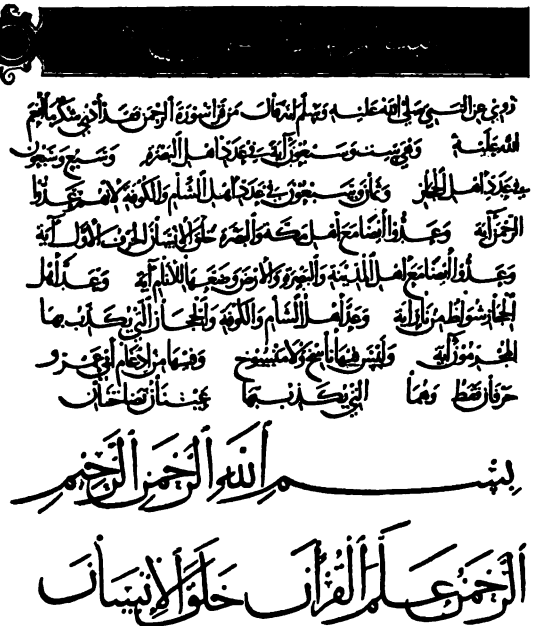 روي عن النبي صلى الله عليه وسلم انه قال من قرأ سورة الرحمن فقد أدى شكر ما انعم
الله عليه وهي ست وسبعون آية في عدد اهل البصرة وسبع وسبعون
في عدد اهل الحجاز وثمان وسبعون في عدد اهل الشام والكوفة لانهم عدوا
الرحمن آية وعدوا أيضا مع اهل مكة والبصرة خلق الإنسان الحرف الأول آية
وعدوا أيضا مع اهل المدينة والبصرة والارض وضعها للأنام آية وعد اهل
الحجاز شواظ من نار آية وعد اهل الشام والكوفة والحجاز التي يكذب بها
المجرمون آية وليس فيها ناسخ ولا منسوخ وفيها من الادغام
حرفان فقط وهما التي يكذب بها عينان نضاختان
بِسْمِ اللَّهِ الرَّحْمَٰنِ الرَّحِيمِ
الرَّحْمَٰنُ عَلَّمَ الْقُرْآنَ خَلَقَ الْإِنسَانَ